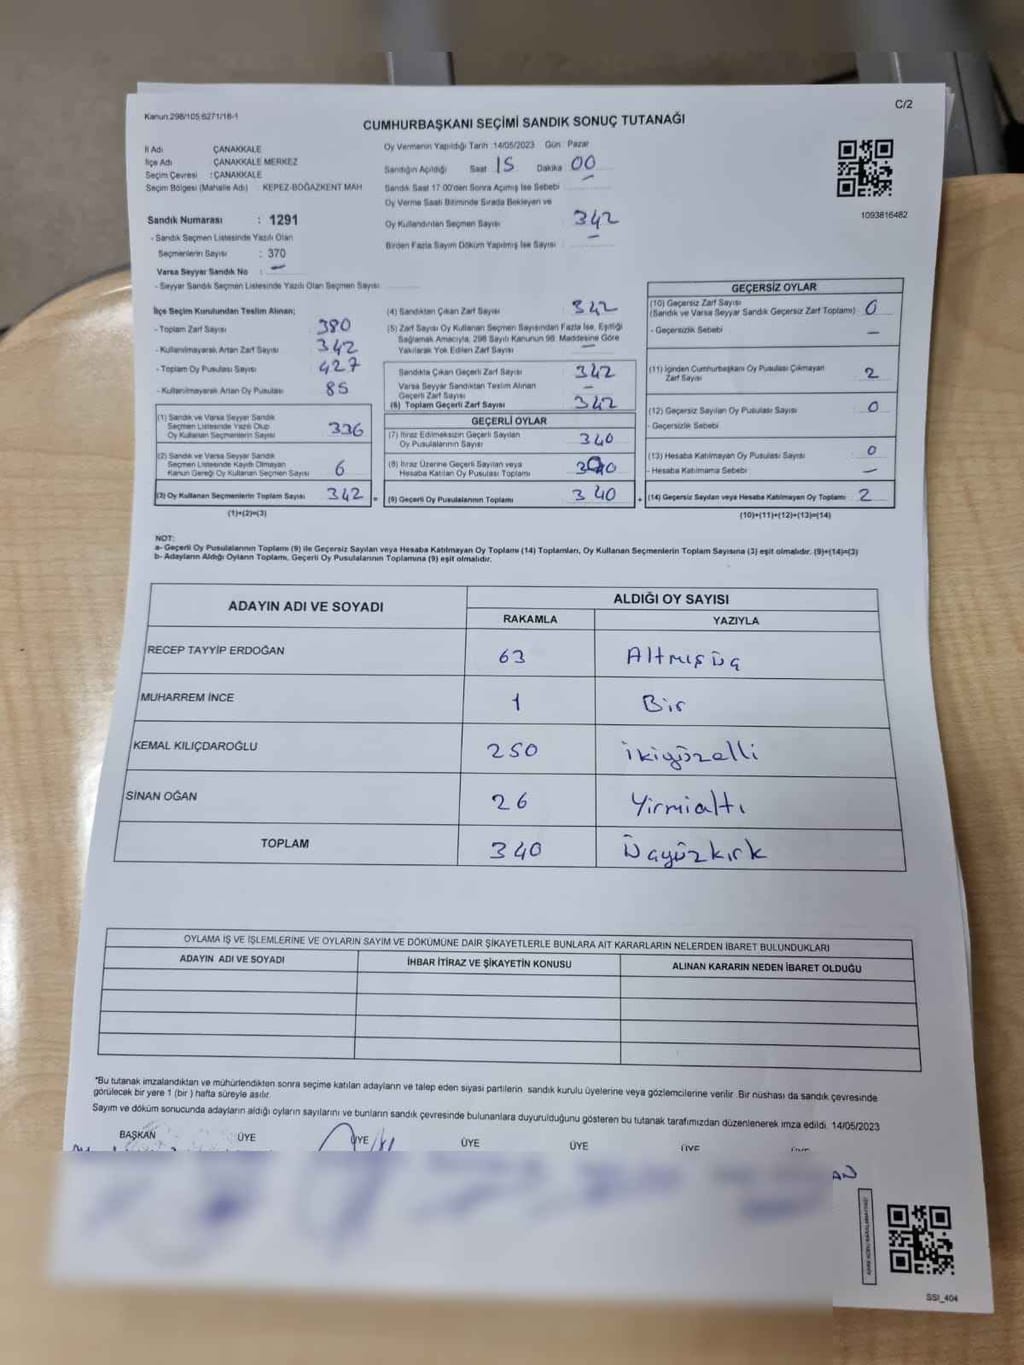 C/2
Kanun:298/105;6271/18-1
CUMHURBAŞKANI SEÇİMİ SANDIK SONUÇ TUTANAĞI
İl Adı ÇANAKKALE
İlçe Adı ÇANAKKALE MERKEZ
Seçim Çevresi : ÇANAKKALE
Seçim Bölgesi (Mahalle Adı) KEPEZ-BOĞAZKENT MAH
Sandık Numarası : 1291
- Sandık Seçmen Listesinde Yazılı Olan
Seçmenlerin Sayısı : 370
Varsa Seyyar Sandık No : –
- Seyyar Sandık Seçmen Listesinde Yazılı Olan Seçmen Sayısı
Oy Vermenin Yapıldığı Tarih 14/05/2023 Gün Pazar
Sandığın Açıldığı Saat 15 Dakika 00
Sandık Saat 17.00'den Sonra Açılmış İse Sebebi –
Oy Verme Saati Bitiminde Sırada Bekleyen ve
Oy Kullandırılan Seçmen Sayısı 342
Birden Fazla Sayım Döküm Yapılmış İse Sayısı –
1093816482
İlçe Seçim Kurulundan Teslim Alınan;
- Toplam Zarf Sayısı 380
- Kullanılmayarak Artan Zarf Sayısı 342
- Toplam Oy Pusulası Sayısı 427
- Kullanılmayarak Artan Oy Pusulası 85
(1) Sandık ve Varsa Seyyar Sandık
Seçmen Listesinde Yazılı Olup
Oy Kullanan Seçmenlerin Sayısı 336
(2) Sandık ve Varsa Seyyar Sandık
Seçmen Listesinde Kayıtlı Olmayan
Kanun Gereği Oy Kullanan Seçmen Sayısı 6
(3) Oy Kullanan Seçmenlerin Toplam Sayısı 342 =
(1)+(2)=(3)
(4) Sandıktan Çıkan Zarf Sayısı 342
(5) Zarf Sayısı Oy Kullanan Seçmen Sayısından Fazla İse, Eşitliği
Sağlamak Amacıyla, 298 Sayılı Kanunun 98. Maddesine Göre
Yakılarak Yok Edilen Zarf Sayısı –
Sandıkta Çıkan Geçerli Zarf Sayısı 342
Varsa Seyyar Sandıktan Teslim Alınan
Geçerli Zarf Sayısı –
(6) Toplam Geçerli Zarf Sayısı 342
GEÇERLİ OYLAR
(7) İtiraz Edilmeksizin Geçerli Sayılan
Oy Pusulalarının Sayısı 340
(8) İtiraz Üzerine Geçerli Sayılan veya
Hesaba Katılan Oy Pusulası Toplamı
(9) Geçerli Oy Pusulalarının Toplamı 340 +
GEÇERSİZ OYLAR
(10) Geçersiz Zarf Sayısı
(Sandık ve Varsa Seyyar Sandık Geçersiz Zarf Toplamı) 0
- Geçersizlik Sebebi –
(11) İçinden Cumhurbaşkanı Oy Pusulası Çıkmayan
Zarf Sayısı 2
(12) Geçersiz Sayılan Oy Pusulası Sayısı 0
- Geçersizlik Sebebi
(13) Hesaba Katılmayan Oy Pusulası Sayısı 0
- Hesaba Katılmama Sebebi –
(14) Geçersiz Sayılan veya Hesaba Katılmayan Oy Toplamı 2
(10)+(11)+(12)+(13)=(14)
NOT:
a- Geçerli Oy Pusulalarının Toplamı (9) ile Geçersiz Sayılan veya Hesaba Katılmayan Oy Toplamı (14) Toplamları, Oy Kullanan Seçmenlerin Toplam Sayısına (3) eşit olmalıdır. (9)+(14)=(3)
b- Adayların Aldığı Oyların Toplamı, Geçerli Oy Pusulalarının Toplamına (9) eşit olmalıdır.
ADAYIN ADI VE SOYADI ALDIĞI OY SAYISI
RAKAMLA YAZIYLA
RECEP TAYYİP ERDOĞAN 63 Altmışüç
MUHARREM İNCE 1 Bir
KEMAL KILIÇDAROĞLU 250 ikiyüzelli
SİNAN OĞAN 26 Yirmialtı
TOPLAM 340 Üçyüzkırk
OYLAMA İŞ VE İŞLEMLERİNE VE OYLARIN SAYIM VE DÖKÜMÜNE DAİR ŞİKAYETLERLE BUNLARA AİT KARARLARIN NELERDEN İBARET BULUNDUKLARI
ADAYIN ADI VE SOYADI İHBAR İTİRAZ VE ŞİKAYETİN KONUSU ALINAN KARARIN NEDEN İBARET OLDUĞU
"Bu tutanak imzalandıktan ve mühürlendikten sonra seçime katılan adayların ve talep eden siyasi partilerin sandık kurulu üyelerine veya gözlemcilerine verilir. Bir nüshası da sandık çevresinde
görülecek bir yere 1 (bir ) hafta süreyle asılır.
Sayım ve döküm sonucunda adayların aldığı oyların sayılarını ve bunların sandık çevresinde bulunanlara duyurulduğunu gösteren bu tutanak tarafımızdan düzenlenerek imza edildi. 14/05/2023
BAŞKAN ÜYE ÜYE ÜYE ÜYE ÜYE
SSI_404